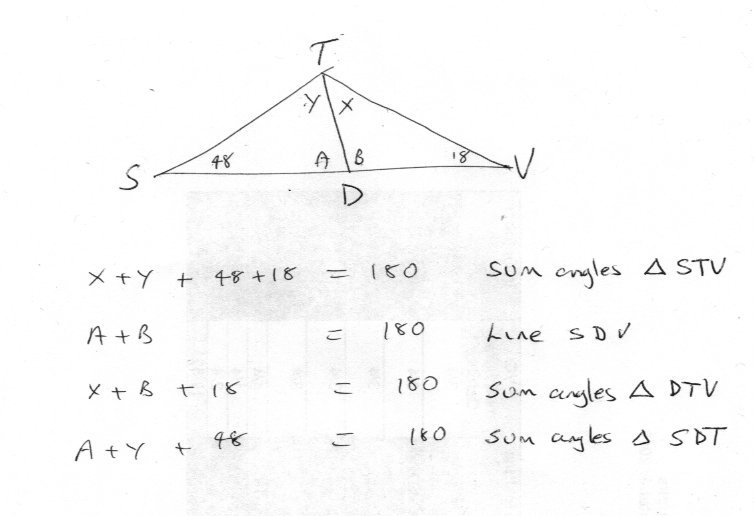 T
Y X
48 A B 18
S D V
X + Y + 48 + 18 = 180 Sum angles Δ STV
A + B = 180 Line SDV
X + B + 18 = 180 Sum angles Δ DTV
A + Y + 48 = 180 Sum angles Δ SDT